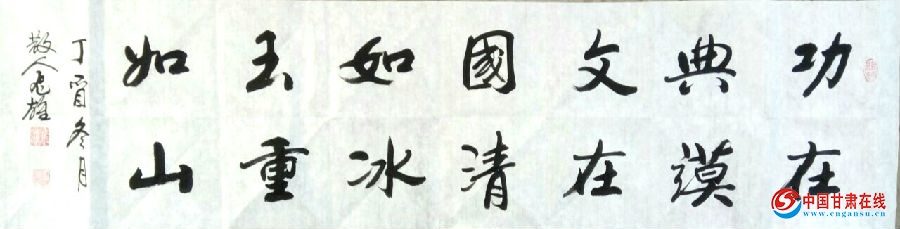 功在
典謨
文在
國清
如冰
玉重
如山
丁酉冬月
散人 雄
中国甘肃在线
www.cngansu.cn